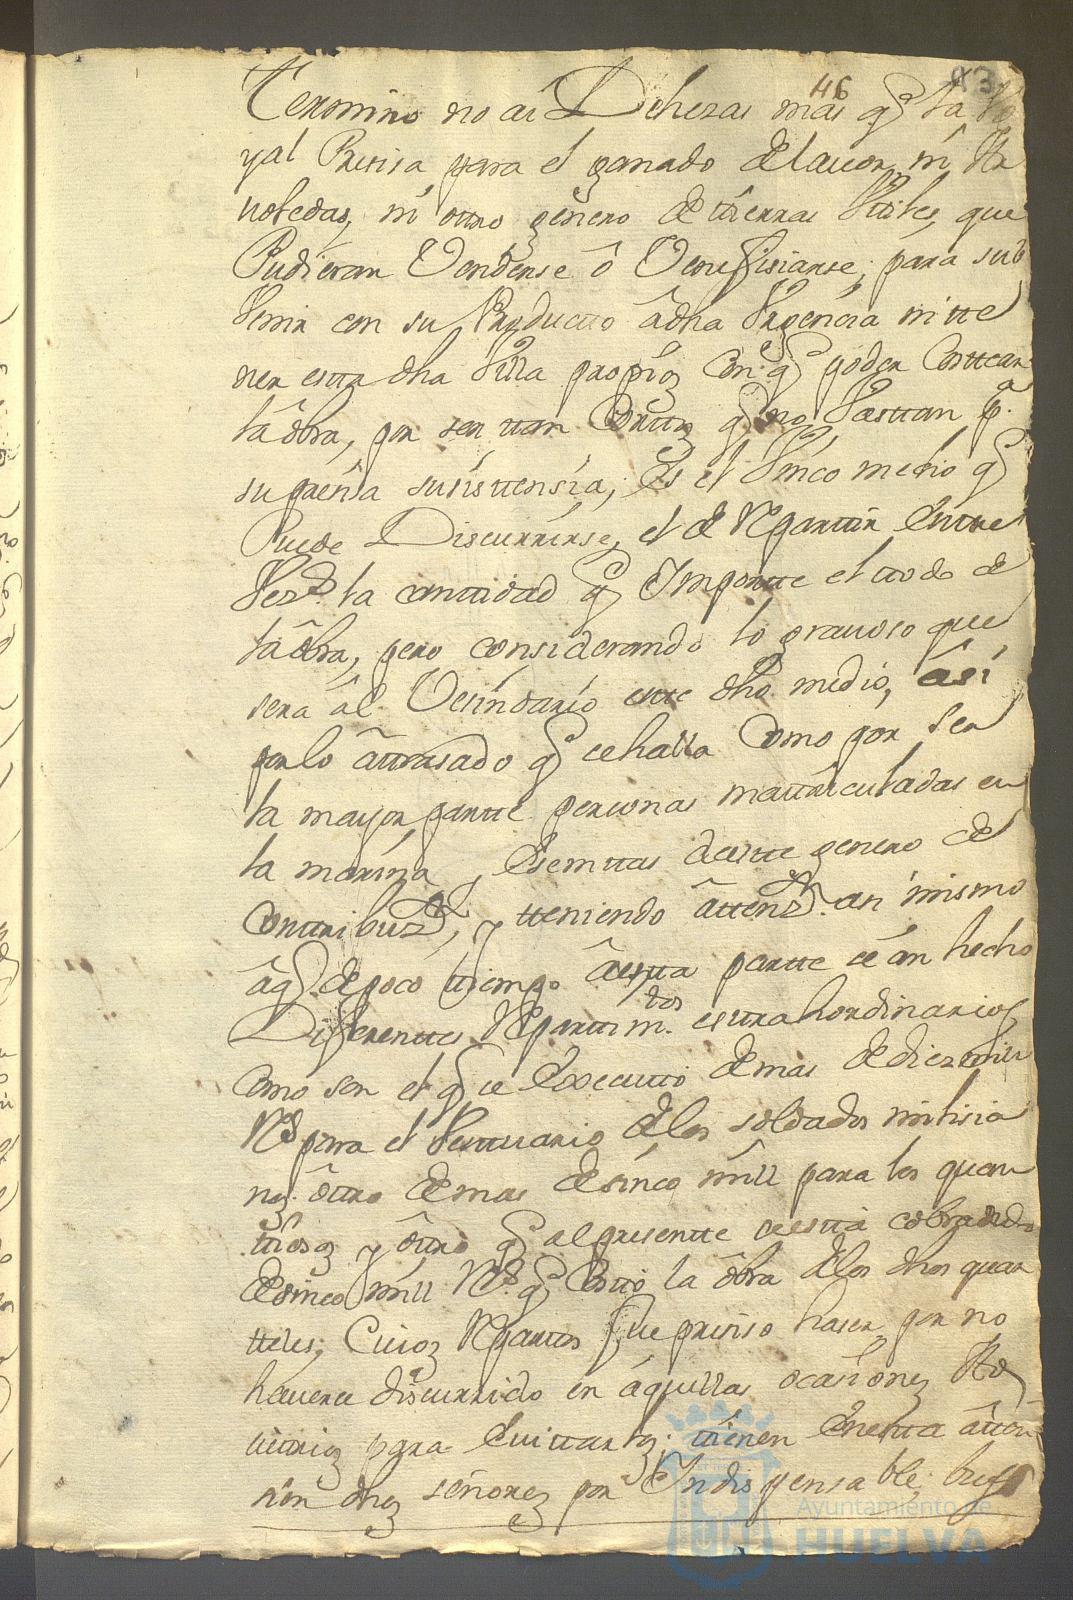 46 83
Termino no ai Dehezas mas q̃ la Bo
yal Presisa para el ganado de lavor, ni Ar
voledas, ni otro genero de tierras Utiles, que
Pudieran Venderse ô Veneficiarse; para sub
venir con su Productto âdha Urgencia ni tte
ner estta dha Villa propios Con q̃ poder Costtear
la ôbra, por ser ttan Corttos q̃ no Vasttan p.ª
su presisa susisttensia; Es el Unico medio q̃
Puede Discurrirse, el de Reparttir Enttre
Vez.ᵒˢ la canttidad q̃ Importe el ttodo de
la ôbra, pero considerando lo gravoso que
sera âl Vecindario estte dho medio, âsi
por lo âttrasado q̃ se halla Como por ser
la mayor partte personas mattriculadas en
la marina, Esemttas de estte genero de
Conttribuz.ⁿ, y tteniendo âttenz.ⁿ asi mismo
âq̃ de poco ttiempo âestta partte se an hecho
Diferenttes Reparttim.ᵗᵒˢ esttrahordinarios
como son el q̃ se Executtó de mas de diez mill
R.ˢ para el Vesttuario de los soldados milisia
nos ôttro de mas de sinco mill para los quar
tteles y ôttro q̃ al presentte se estta cobrando
de sinco mill R.ˢ q̃ Costtó la ôbra de los dhos quar
tteles; Cuios Reparttos fue presiso haser por no
haverse discurrido en aquellas ocasiones Ar
vittrios para Evittarlos; ttienen En estta âtten
sion dhos señores por Indispensable, bus
Ayuntamiento de
HUELVA